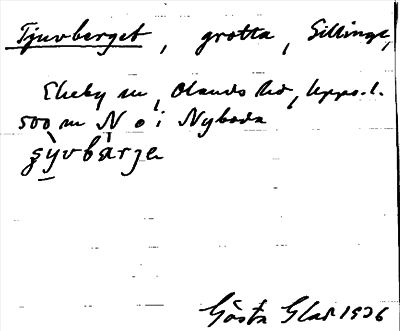 Tjuvberget, grotta, Sillinge,
Ekeby sn, Olands hd, Upps. l.
500 m N o i Nyboda
Gösta Glas 1926